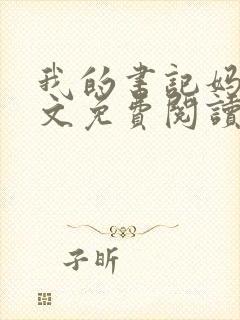 我的書記媽
文免費閱讀
子昕